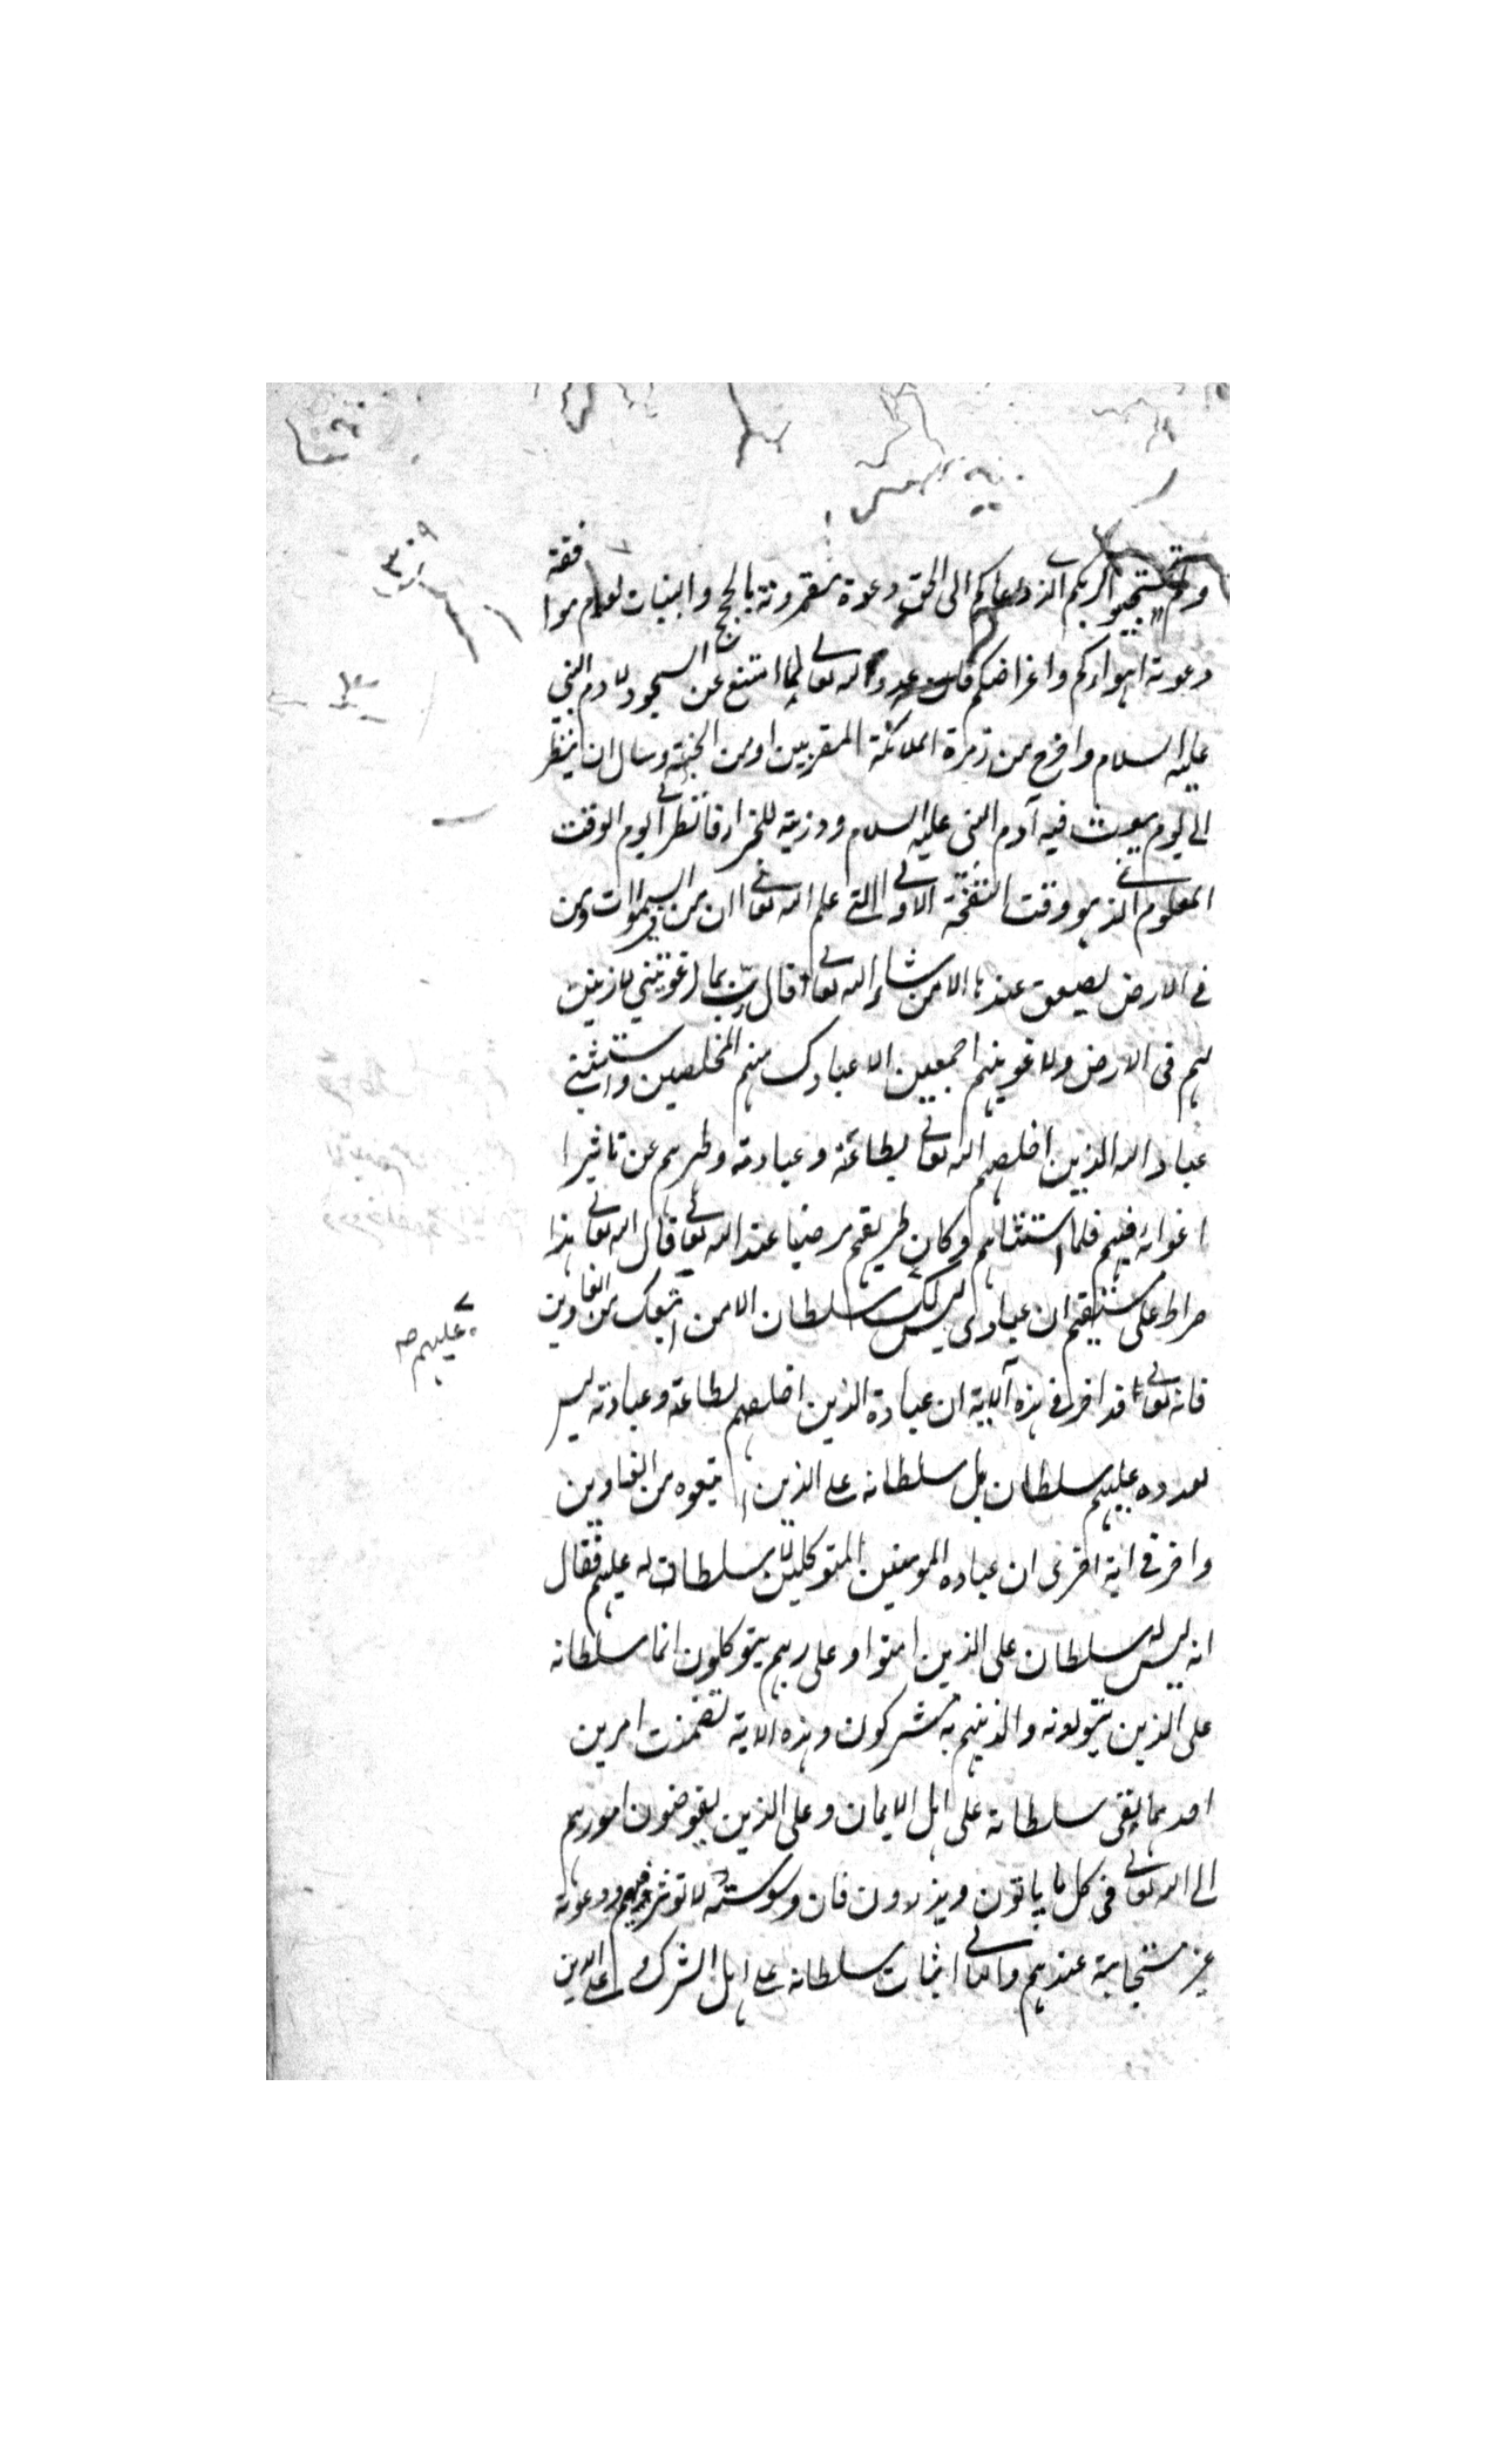 ولم تستجيبوا لربكم الذي دعاكم الى الحق دعوة مقرونة بالحجج والبينات لعدم موافقة
دعوته اهواءكم واغراضكم فان عدو الله تعالى لما امتنع عن السجود لادم النبي
عليه السلام واخرج من زمرة الملائكة المقربين او من الجنة وسال ان ينتظر
الى يوم يبعث فيه آدم النبي عليه السلام وذريته للجزاء فانظر الى يوم الوقت
المعلوم الذي هو وقت النفخة الاولى التي علم الله تعالى ان من في السموات ومن
في الارض يصعق عندها الا من شاء الله تعالى قال رب بما اغويتني لازينن
لهم في الارض ولاغوينهم اجمعين الا عبادك منهم المخلصين واستثنى
عباد الله الذين اخلصهم الله تعالى بطاعته وعبادته وطهرهم عن تاثير
اغوائه فيهم فلما استثناهم وكان طريقهم مرضيا عند الله تعالى قال الله تعالى هذا
صراط علي مستقيم ان عبادي ليس لك سلطان الا من اتبعك من الغاوين
عليهم صح
فانه تعالى قد اخبر في هذه الآية ان عباده الذين اخلصهم لطاعته وعبادته ليس
لعدوه عليهم سلطان بل سلطانه على الذين اتبعوه من الغاوين
واخبر في اية اخرى ان عباده المومنين المتوكلين لا سلطان له عليهم فقال
انه ليس له سلطان على الذين امنوا وعلى ربهم يتوكلون انما سلطانه
على الذين يتولونه والذينهم به مشركون وهذه الاية تضمنت امرين
احدهما نفى سلطانه على اهل الايمان وعلى الذين يفوضون امورهم
الى الله تعالى في كل ما ياتون ويذرون فان وسوسته لا توثر فيهم ودعوته
غير مستجابة عندهم والثاني اثبات سلطانه على اهل الشرك وعلى الذين